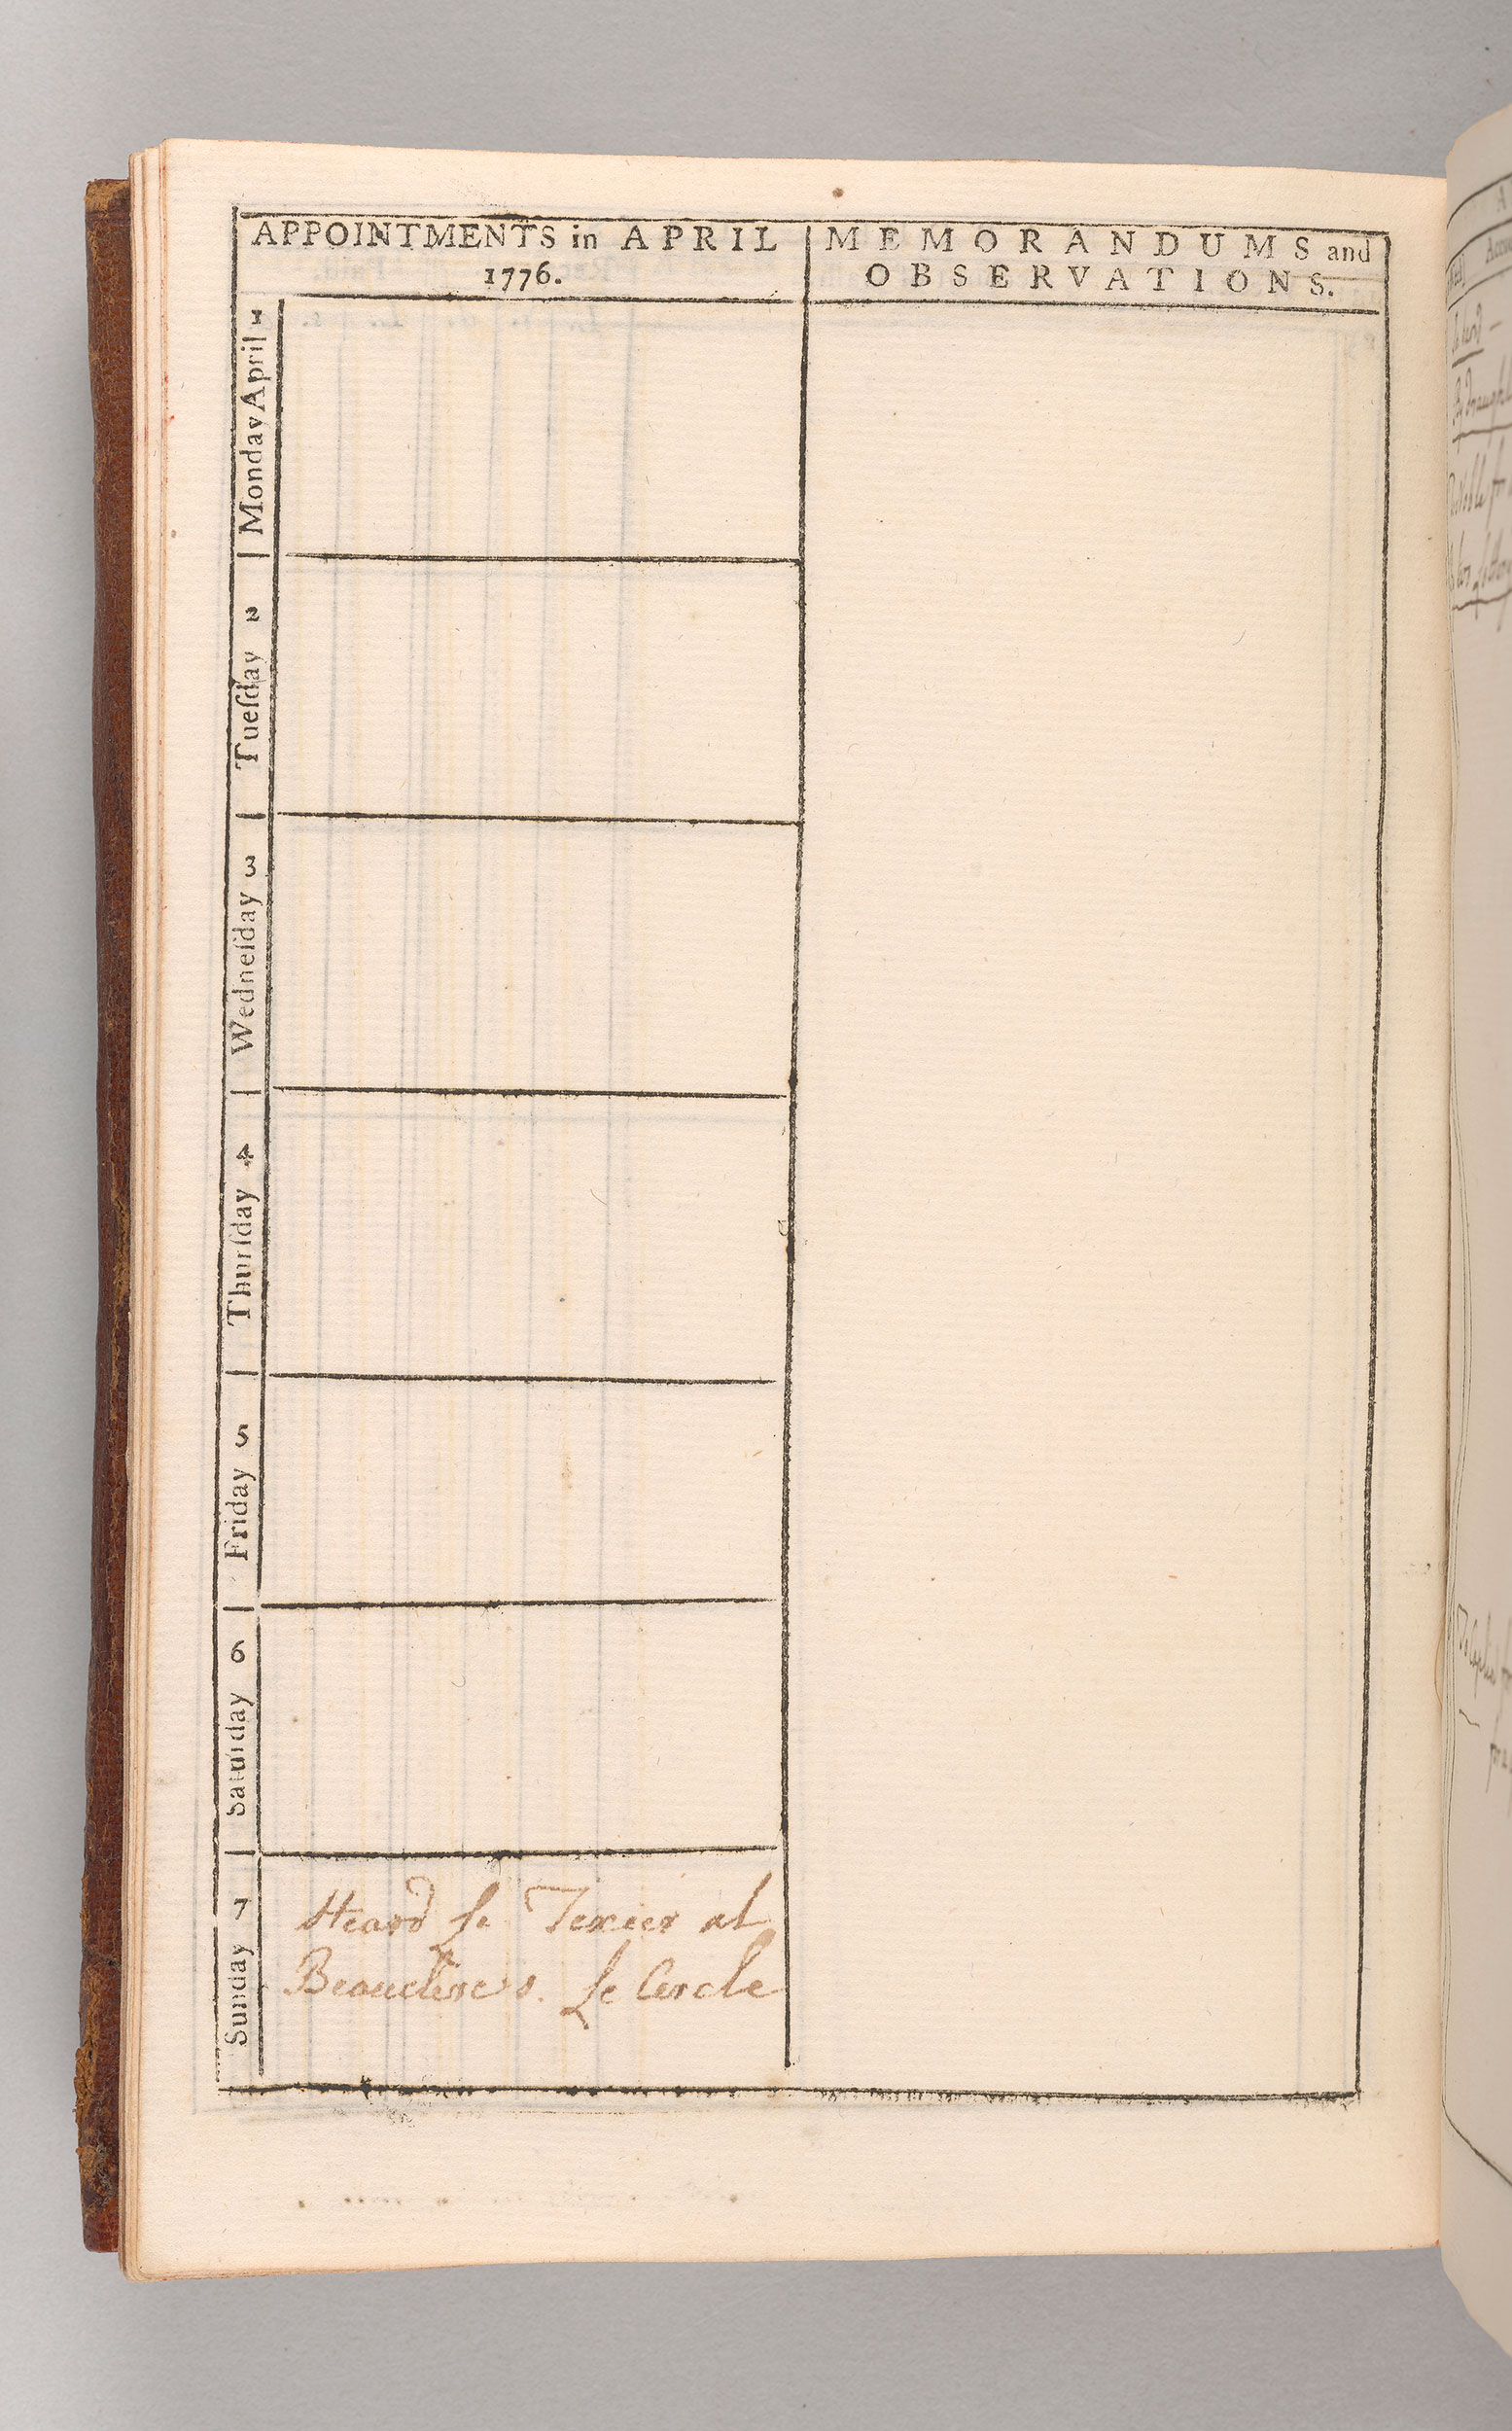 APPOINTMENTS in APRIL
1776.
MEMORANDUMS and
OBSERVATIONS.
Monday April 1
Tueſday 2
Wedneſday 3
Thurſday 4
Friday 5
Saturday 6
Sunday 7
Heard Le Texier at
Beauclerc's. Le Cercle